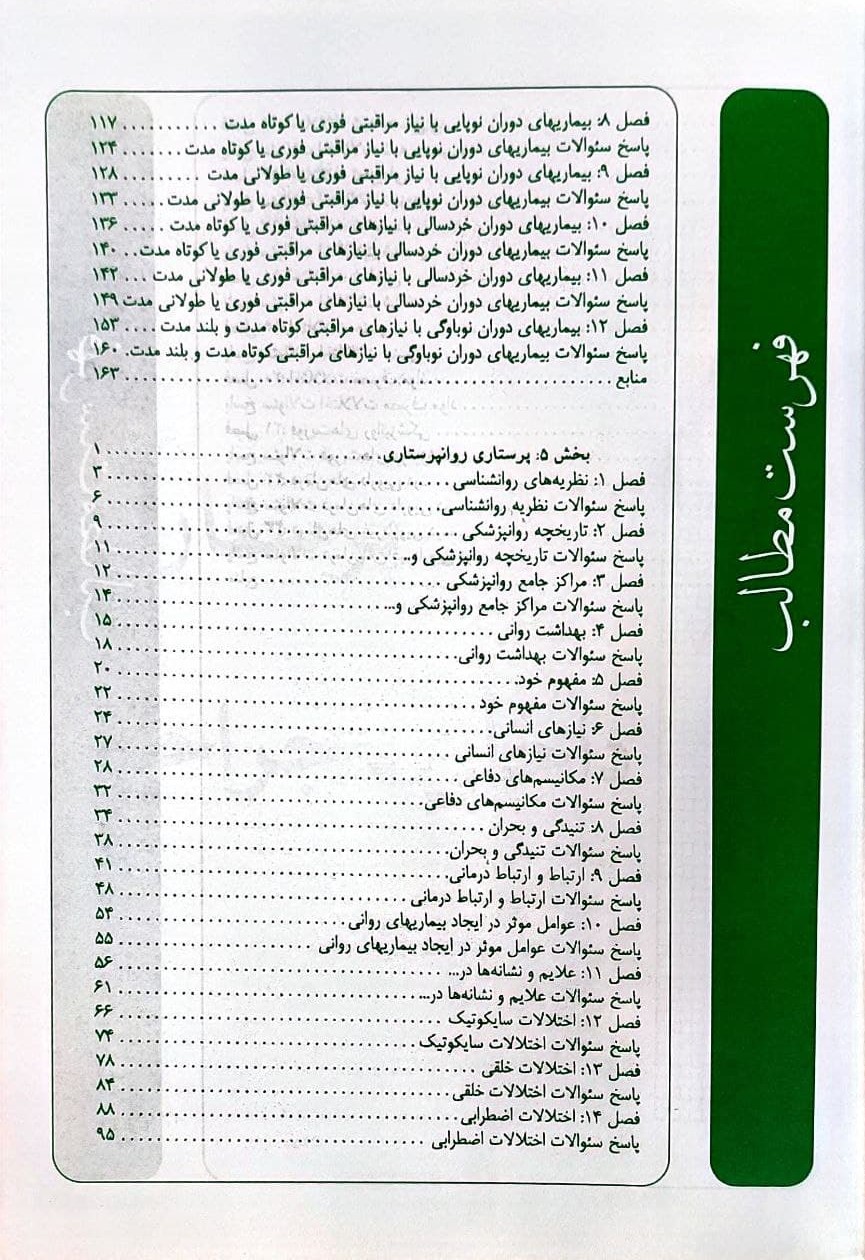 فهرست مطالب
فصل ۸: بیماریهای دوران نوپایی با نیاز مراقبتی فوری یا کوتاه مدت ........... ۱۱۷
پاسخ سئوالات بیماریهای دوران نوپایی با نیاز مراقبتی فوری یا کوتاه مدت ....... ۱۲۴
فصل ۹: بیماریهای دوران نوپایی با نیاز مراقبتی فوری یا طولانی مدت .......... ۱۲۸
پاسخ سئوالات بیماریهای دوران نوپایی با نیاز مراقبتی فوری یا طولانی مدت ..... ۱۳۳
فصل ۱۰: بیماریهای دوران خردسالی با نیازهای مراقبتی فوری یا کوتاه مدت ..... ۱۳۶
پاسخ سئوالات بیماریهای دوران خردسالی با نیازهای مراقبتی فوری یا کوتاه مدت .. ۱۴۰
فصل ۱۱: بیماریهای دوران خردسالی با نیازهای مراقبتی فوری یا طولانی مدت ... ۱۴۲
پاسخ سئوالات بیماریهای دوران خردسالی با نیازهای مراقبتی فوری یا طولانی مدت ۱۴۹
فصل ۱۲: بیماریهای دوران نوباوگی با نیازهای مراقبتی کوتاه مدت و بلند مدت .... ۱۵۳
پاسخ سئوالات بیماریهای دوران نوباوگی با نیازهای مراقبتی کوتاه مدت و بلند مدت. ۱۶۰
منابع ........................................ ۱۶۳
بخش ۵: پرستاری روانپرستاری ........................................ ۱
فصل ۱: نظریه‌های روانشناسی ........................................ ۳
پاسخ سئوالات نظریه روانشناسی ........................................ ۶
فصل ۲: تاریخچه روانپزشکی ........................................ ۹
پاسخ سئوالات تاریخچه روانپزشکی و... ........................................ ۱۱
فصل ۳: مراکز جامع روانپزشکی ........................................ ۱۲
پاسخ سئوالات مراکز جامع روانپزشکی و... ........................................ ۱۴
فصل ۴: بهداشت روانی ........................................ ۱۵
پاسخ سئوالات بهداشت روانی ........................................ ۱۸
فصل ۵: مفهوم خود ........................................ ۲۰
پاسخ سئوالات مفهوم خود ........................................ ۲۲
فصل ۶: نیازهای انسانی ........................................ ۲۴
پاسخ سئوالات نیازهای انسانی ........................................ ۲۷
فصل ۷: مکانیسم‌های دفاعی ........................................ ۲۸
پاسخ سئوالات مکانیسم‌های دفاعی ........................................ ۳۲
فصل ۸: تنیدگی و بحران ........................................ ۳۴
پاسخ سئوالات تنیدگی و بحران ........................................ ۳۸
فصل ۹: ارتباط و ارتباط درمانی ........................................ ۴۱
پاسخ سئوالات ارتباط و ارتباط درمانی ........................................ ۴۸
فصل ۱۰: عوامل موثر در ایجاد بیماریهای روانی ........................................ ۵۴
پاسخ سئوالات عوامل موثر در ایجاد بیماریهای روانی ........................................ ۵۵
فصل ۱۱: علایم و نشانه‌ها در... ........................................ ۵۶
پاسخ سئوالات علایم و نشانه‌ها در... ........................................ ۶۱
فصل ۱۲: اختلالات سایکوتیک ........................................ ۶۶
پاسخ سئوالات اختلالات سایکوتیک ........................................ ۷۴
فصل ۱۳: اختلالات خلقی ........................................ ۷۸
پاسخ سئوالات اختلالات خلقی ........................................ ۸۴
فصل ۱۴: اختلالات اضطرابی ........................................ ۸۸
پاسخ سئوالات اختلالات اضطرابی ........................................ ۹۵